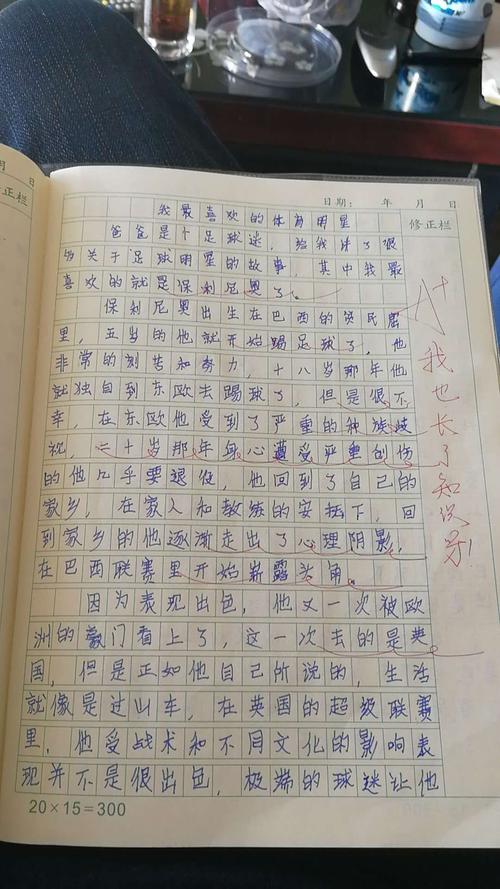 月 日
正栏
日期： 年 月 日
修正栏
我最喜欢的体育明星
爸爸是个足球迷，给我讲了很
多关于足球明星的故事，其中我最
喜欢的就是保利尼奥了。
保利尼奥出生在巴西的贫民窟
里，五岁的他就开始踢足球了，他
非常的刻苦和努力，十八岁那年他
就独自到东欧去踢球了，但是很不
幸，在东欧他受到了严重的种族歧
视，二十岁那年身心遭受严重创伤
的他几乎要退役，他回到了自己的
家乡，在家人和教练的安抚下，回
到家乡的他逐渐走出了心理阴影，
在巴西联赛里开始崭露头角。
因为表现出色，他又一次被欧
洲的豪门看上了，这一次去的是英
国，但是正如他自己所说的，生活
就像是过山车，在英国的超级联赛
里，他受战术和不同文化的影响表
现并不是很出色，极端的球迷让他
20×15=300
A+
我也长了知识呀！